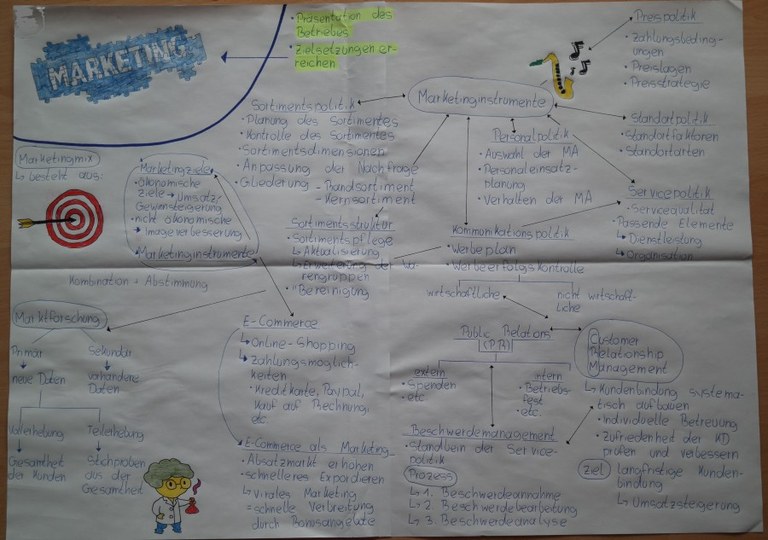 MARKETING
• Präsentation des
Betriebus
• Zielsetzungen er-
reichen
Marketingmix
↳ besteht aus:
Marketingziele
• Ökonomische
Ziele → Umsatz/
Gewinnsteigerung
• nicht ökonomische
→ Imageverbesserung
Marketinginstrumente
Kombination + Abstimmung
Sortimentspolitik
• Planung des Sortimentes
• Kontrolle des Sortimentes
• Sortimentsdimensionen
• Anpassung der Nachfrage
• Gliederung - Randsortiment
- Kernsortiment
Sortimentsstruktur
• Sortimentspflege
↳ Aktualisierung
↳ Erweiterung der Wa-
rengruppen
• Bereinigung
Marketinginstrumente
Personalpolitik
• Auswahl der MA
• Personaleinsatz-
planung
• Verhalten der MA
Preispolitik
• Zahlungsbeding-
ungen
• Preislagen
• Preisstrategie
Standortpolitik
• Standortfaktoren
• Standortarten
Servicepolitik
• Servicequalität
• Passende Elemente
↳ Dienstleistung
↳ Organisation
Kommunikationspolitik
• Werbeplan
• Werbeerfolgskontrolle
wirtschaftliche
nicht wirtschaft-
liche
Marktforschung
Primär
Sekundär
neue Daten
vorhandene
Daten
Vollerhebung
Teilerhebung
Gesamtheit
der Kunden
Stichproben
aus der
Gesamtheit
E-Commerce
↳ Online-Shopping
↳ Zahlungsmöglich-
keiten
• Kreditkarte, Paypal,
Kauf auf Rechnung,
etc.
E-Commerce als Marketing
• Absatzmarkt erhöhen
• schnelleres Exportieren
↳ virales Marketing
= schnelle Verbreitung
durch Bonusangebote
Public Relations
(PR)
extern
• Spenden
• etc.
intern
• Betriebs-
fest
• etc.
Beschwerdemanagement
• Standbein der Service-
politik
Prozess
↳ 1. Beschwerdeannahme
↳ 2. Beschwerdebearbeitung
↳ 3. Beschwerdeanalyse
Customer
Relationship
Management
↳ Kundenbindung systema-
tisch aufbauen
• Individuelle Betreuung
• Zufriedenheit der KD
prüfen und verbessern
Ziel langfristige Kunden-
bindung
↳ Umsatzsteigerung